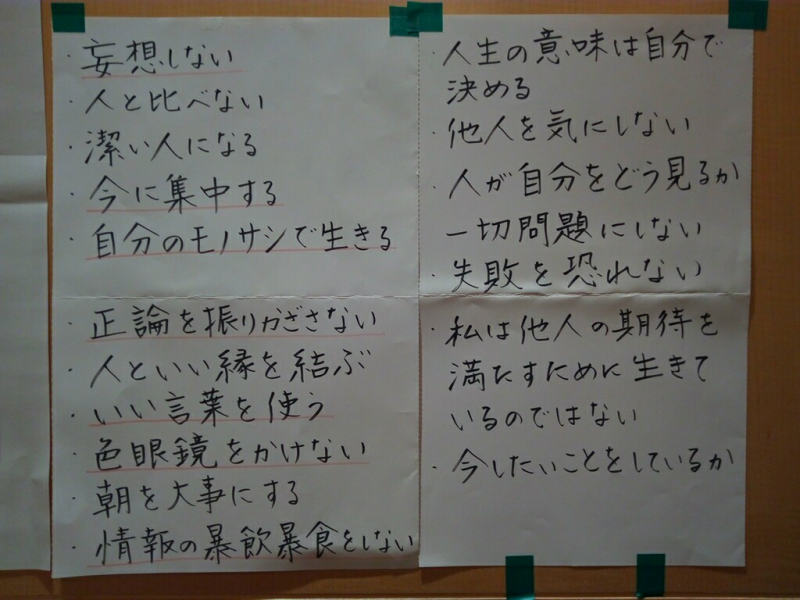 ・妄想しない
・人と比べない
・潔い人になる
・今に集中する
・自分のモノサシで生きる
・正論を振りかざさない
・人といい縁を結ぶ
・いい言葉を使う
・色眼鏡をかけない
・朝を大事にする
・情報の暴飲暴食をしない
・人生の意味は自分で
決める
・他人を気にしない
・人が自分をどう見るか
一切問題にしない
・失敗を恐れない
・私は他人の期待を
満たすために生きて
いるのではない
・今したいことをしているか